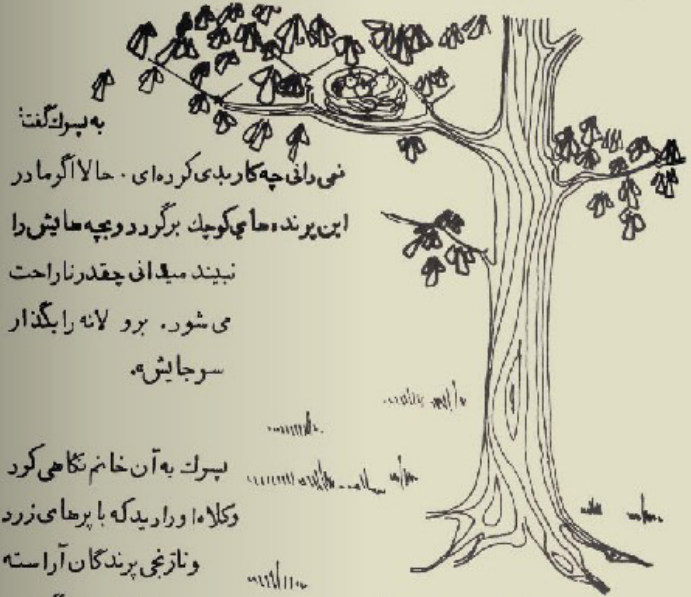 به پسرك گفت:
نمی‌دانی چه کار بدی کرده‌ای. حالا اگر مادر
این پرنده‌های کوچك برگردد و بچه‌هایش را
نبیند میدانی چقدر ناراحت
می‌شود. برو لانه را بگذار
سر جایش».
پسرك به آن خانم نگاهی کرد
و کلاه او را دید که با پرهای زرد
و نارنجی پرندگان آراسته